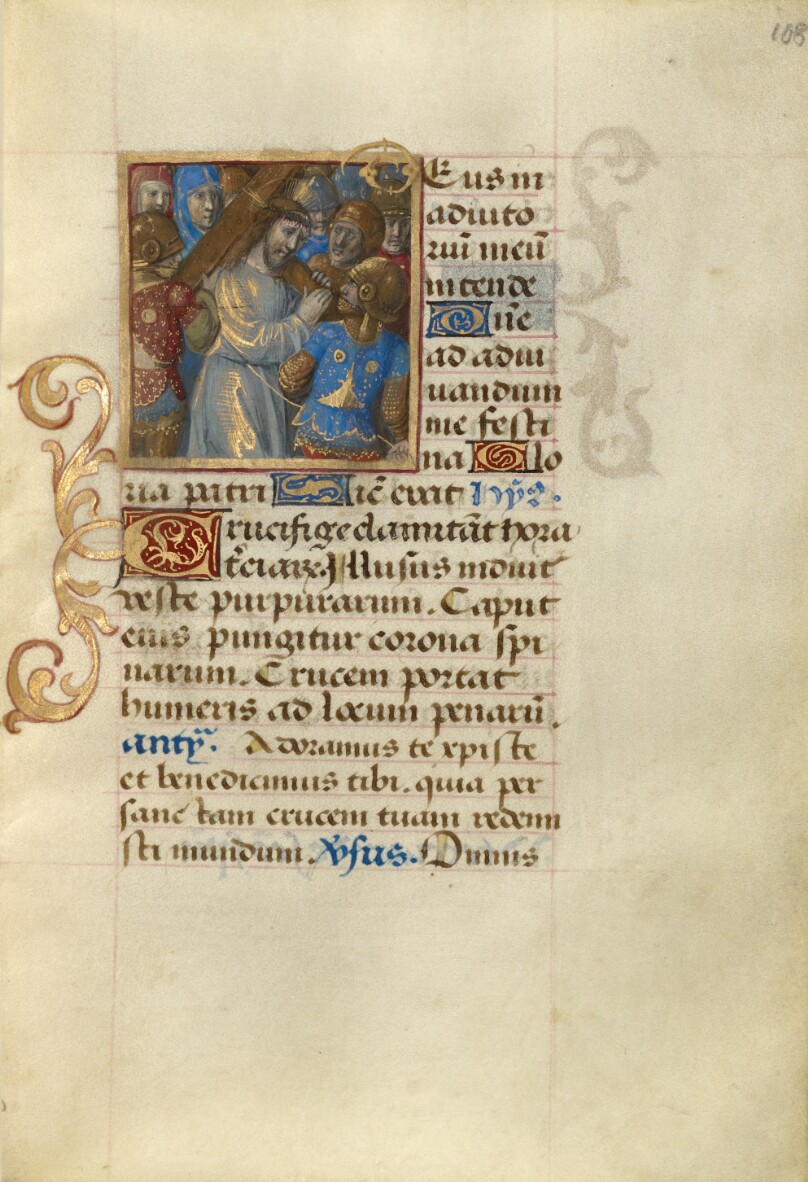 108
Deus in
adiuto
riū meū
intende
Dñe
ad adiu
uandum
me festi
na Glo
ria patri Sic̄ erat hȳs.
Crucifige clamitāt hora
t̄ciarȝ Illusus induit̄
veste purpurarum. Caput
eius pungitur corona spi
narum. Crucem portat
humeris ad locum penarū.
antȳ. Adoramus te xpiste
et benedicimus tibi. quia per
sanctam crucem tuam redemi
sti mundum. V̄sus. Omnis